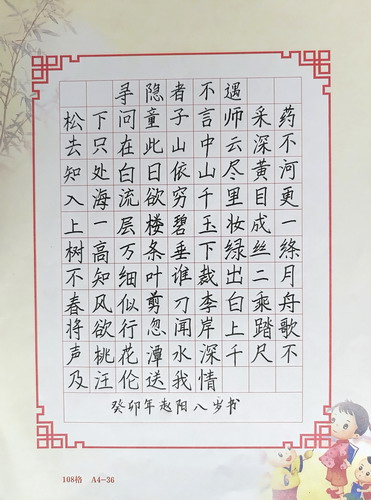 寻隐者不遇
松下问童子言师采药
去只在此山中云深不
知处白日依山尽黄河
入海流欲穷千里目更
上一层楼碧玉妆成一
树高万条垂下绿丝绦
不知细叶谁裁出二月
春风似剪刀李白乘舟
将欲行忽闻岸上踏歌
声桃花潭水深千尺不
及汪伦送我情
癸卯年赵阳八岁书
108格 A4-36